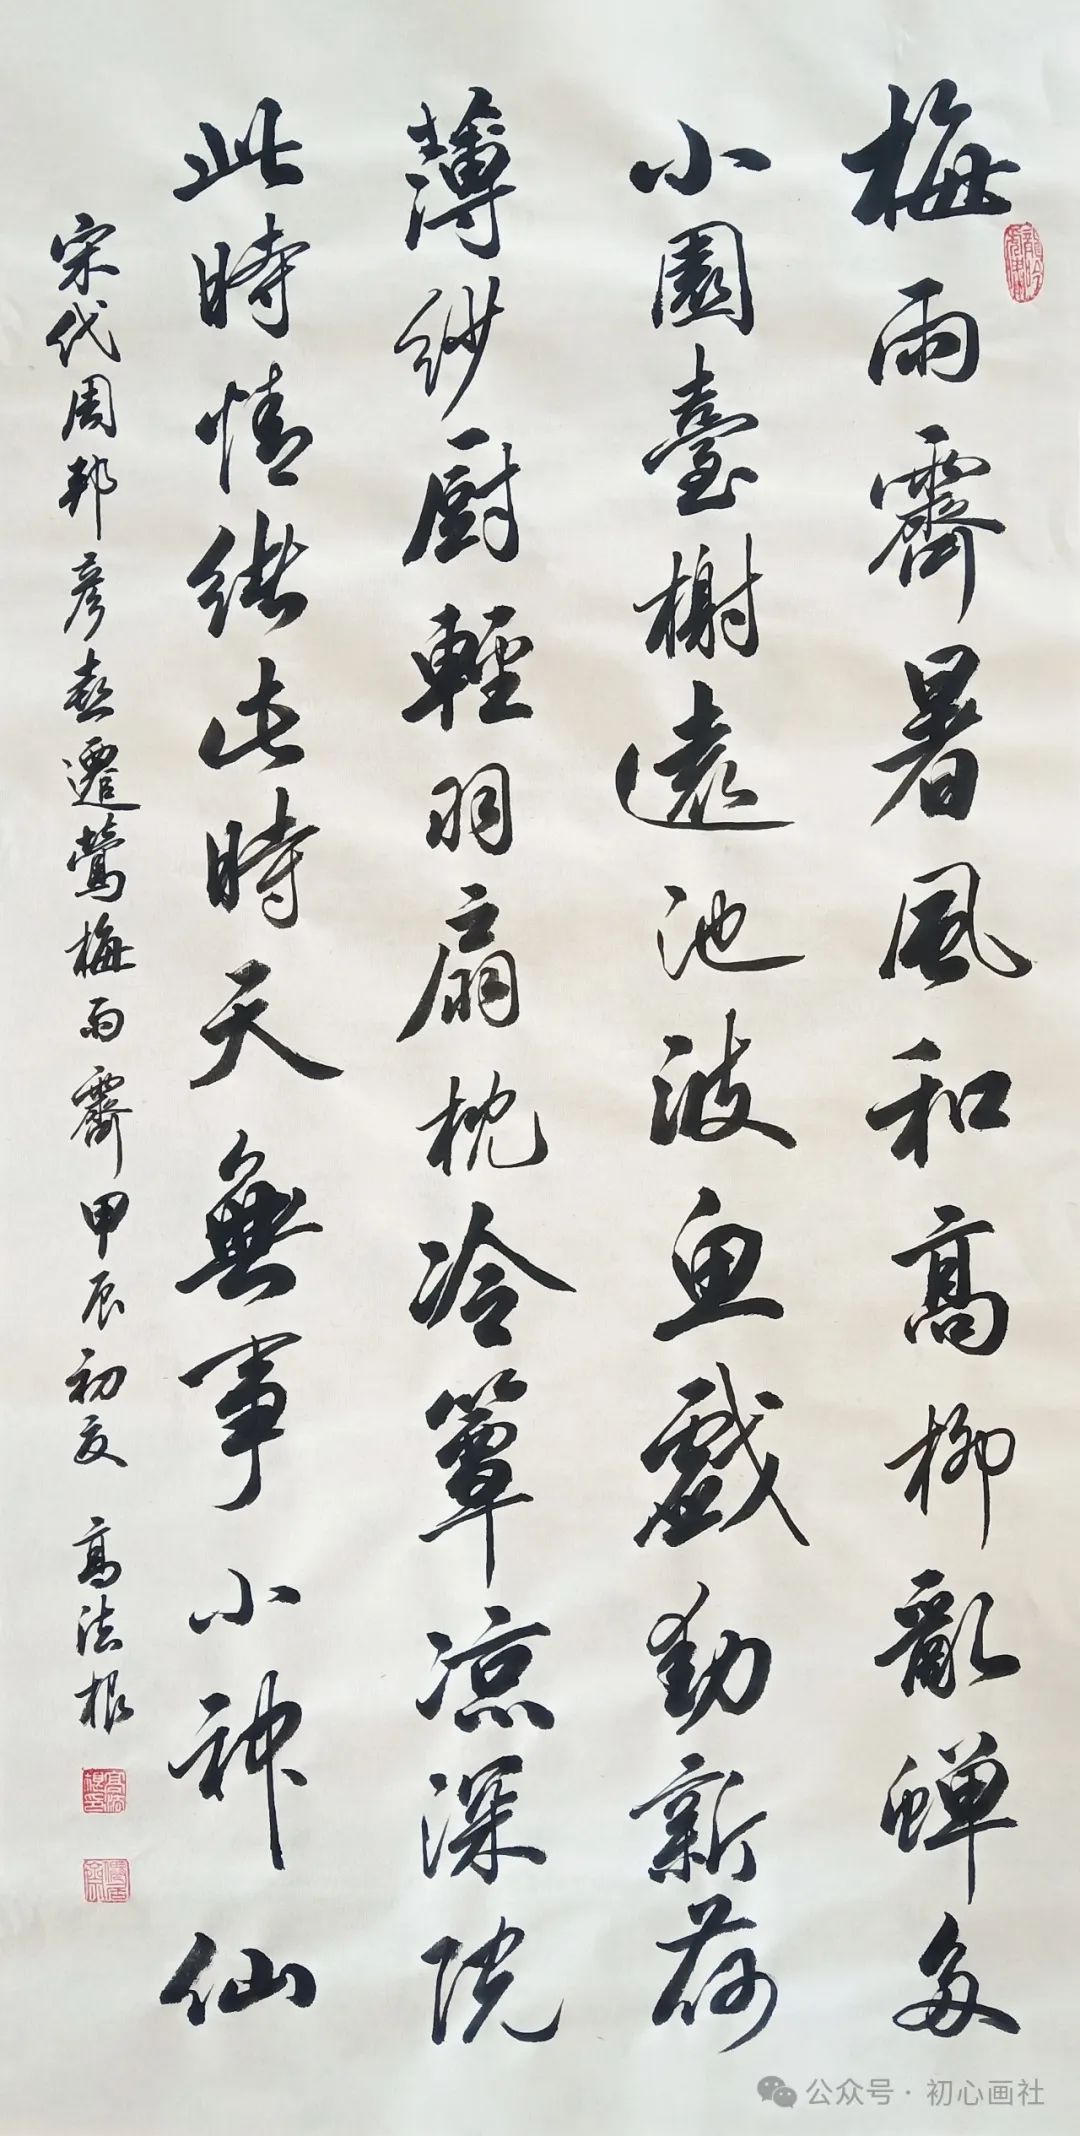 梅雨霽暑風和高柳亂蟬多
小園臺榭遠池波魚戲動新荷
薄紗厨輕羽扇枕冷簟凉深院
此時情緒此時天無事小神仙
宋代周邦彦喜遷鶯梅雨霽甲辰初夏 高法根
公众号·初心画社